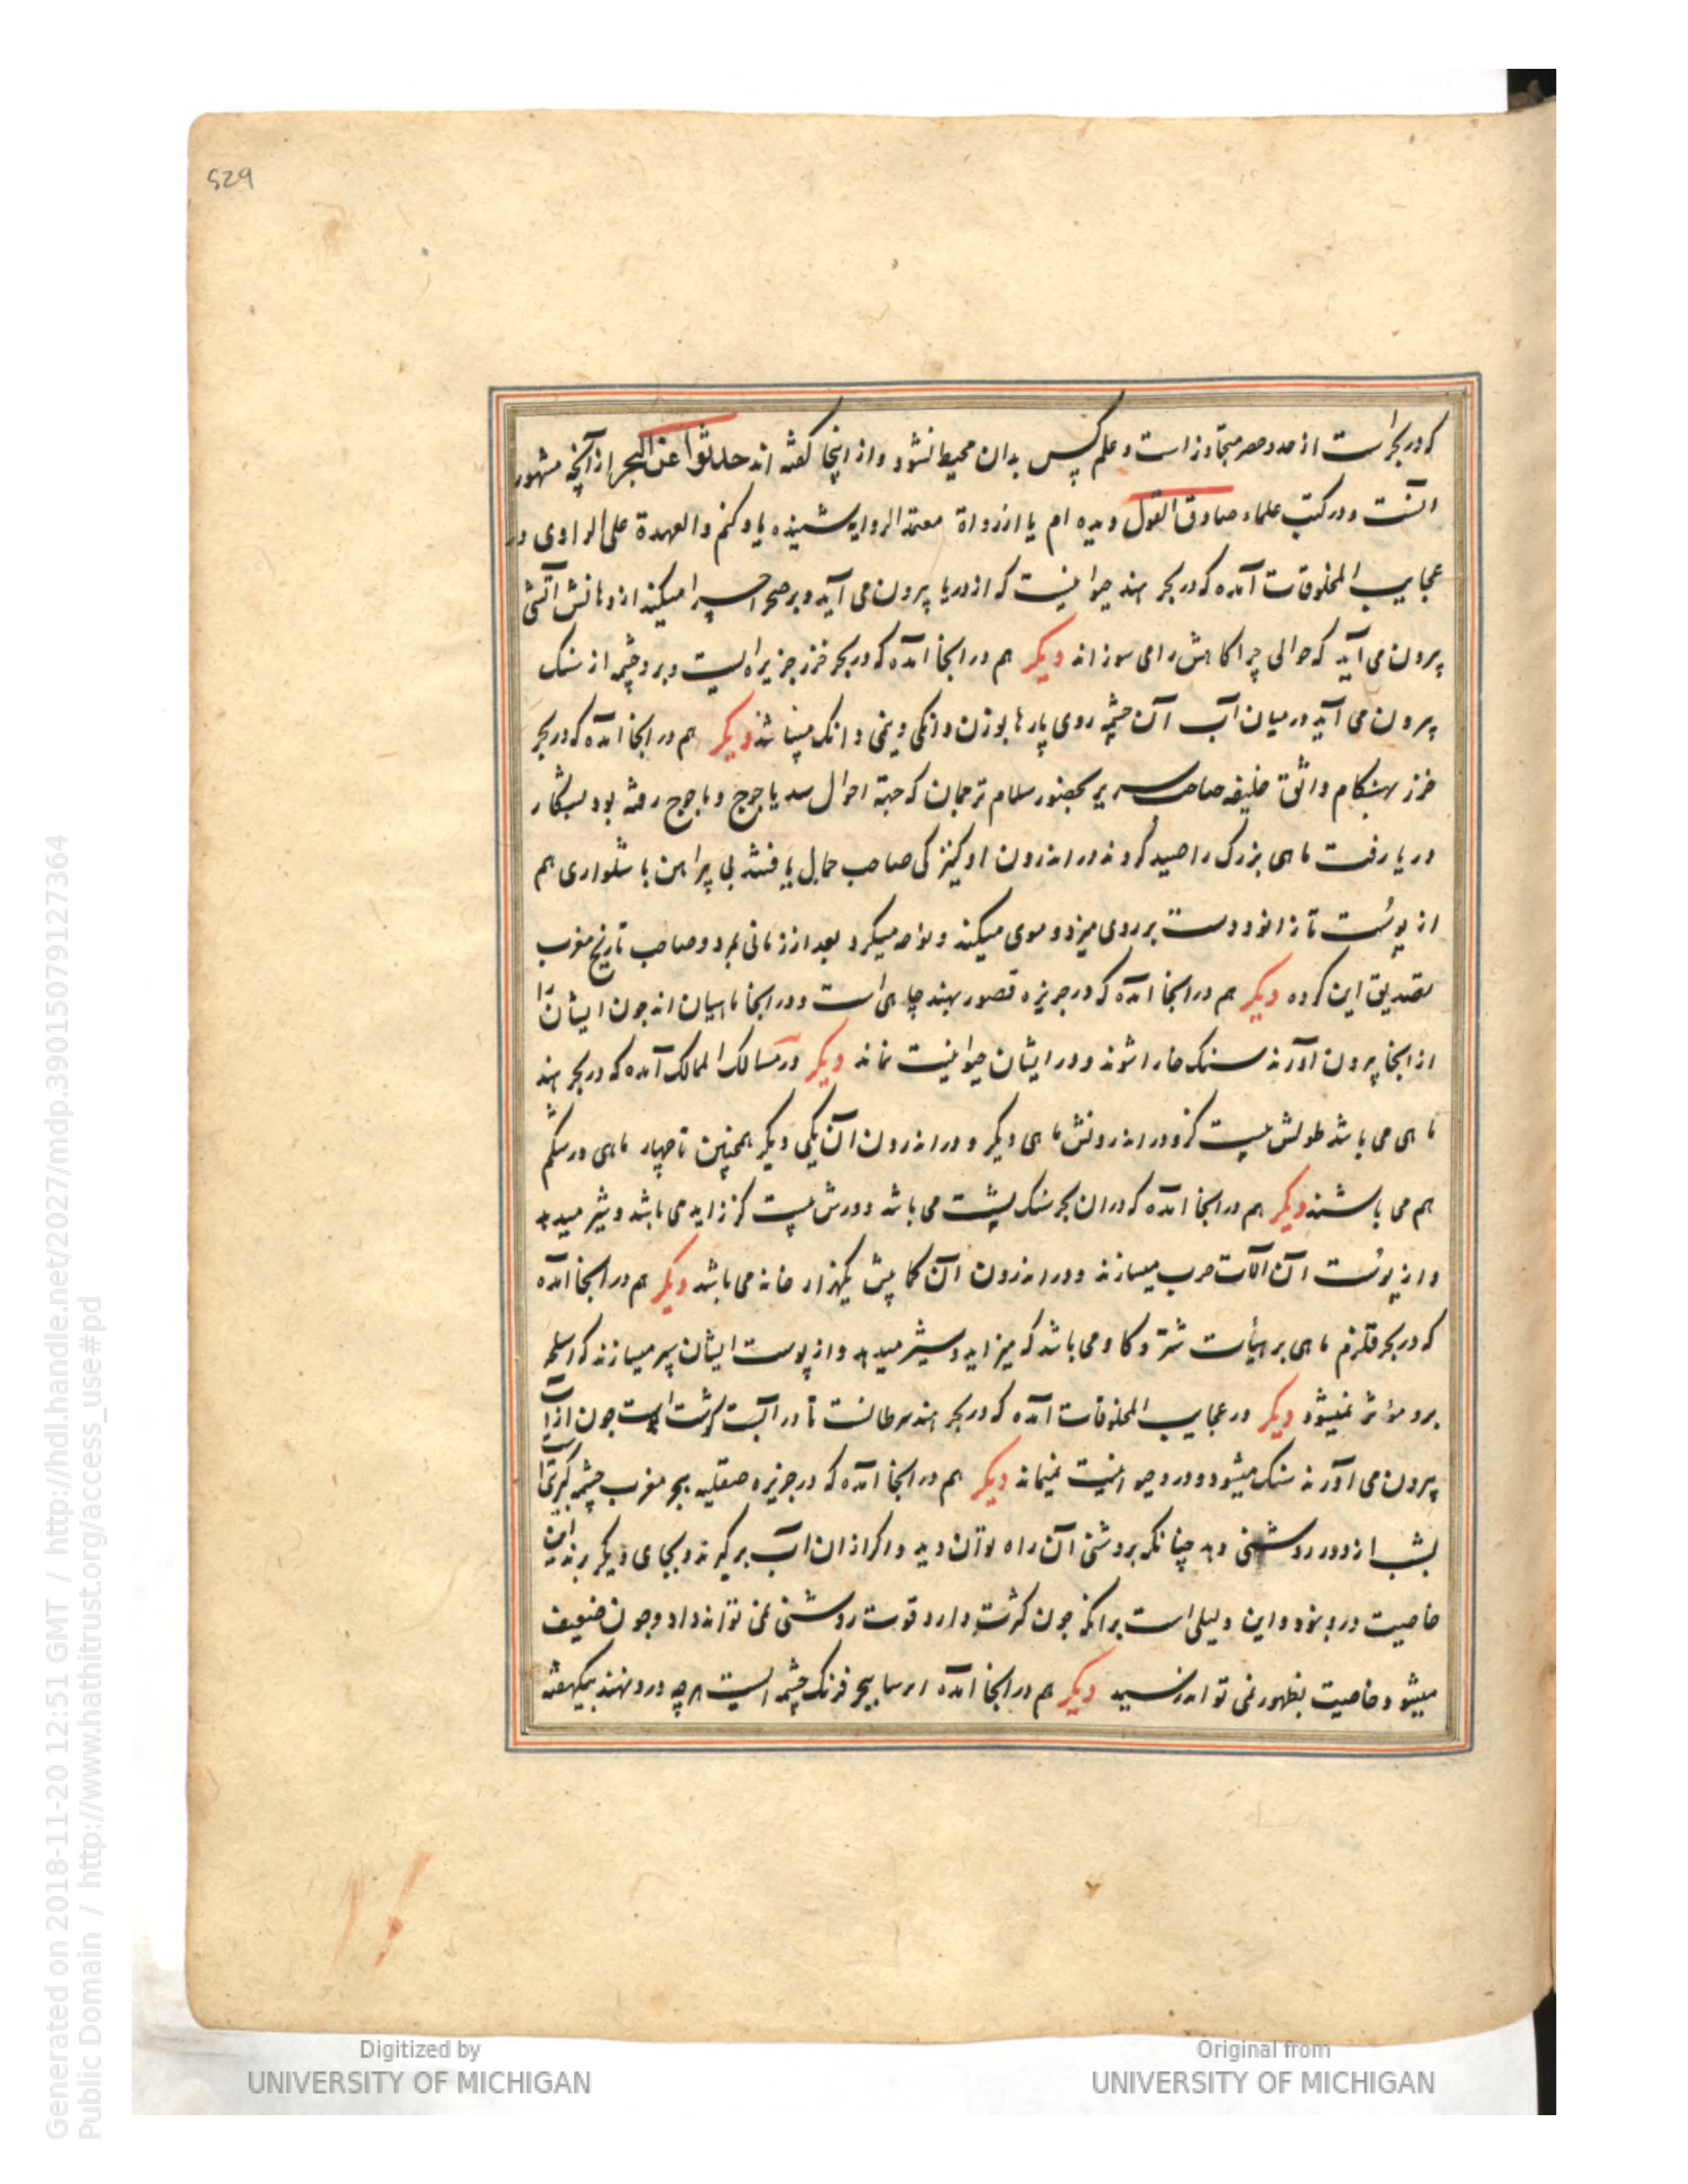 529
که در بحر است از حد و حصر متجاوز است و علم کس بدان محیط نشود و از اینجا گفته اند حدثوا عن البحر از آنچه مشهور
است و در کتب علماء صادق القول دیده ام یا از رواة معتمد الروایه شنیده یاد کنم والعهدة علی الراوی در
عجایب المخلوقات آمده که در بحر هند حیوانیست که از دریا بیرون می آید و بر صحرا چرا میکند از دهانش آتش
بیرون می آید که حوالی چراگاهش را می سوزاند دیگر هم در انجا آمده که در بحر خزر جزیره ایست و برو چشمه از سنک
بیرون می آید در میان آب آن چشمه روی پارها بوزن دانکی و نیم دانک میباشد دیگر هم در انجا آمده که در بحر
خزر بهنکام واثق خلیفه صاحب سریر بحضور سلام ترجمان که جهة احوال سد یاجوج و ماجوج رفته بود بشکار
دریا رفت ماهی بزرک را صید کردند در اندرون او کنیزکی صاحب جمال یافتند بی پیراهن با شلواری هم
از پوست تا زانو و دست بر روی میزد و موی میکند و نوحه میکرد بعد از زمانی بمرد و صاحب تاریخ مغرب
تصدیق این کرده دیگر هم در انجا آمده که در جزیره قصور بهند چاهی است و در انجا ماهیان اند جون ایشان را
از انجا بیرون آورند سنک خارا شوند و در ایشان حیوانیت نماند دیگر در مسالک الممالک آمده که در بحر هند
ماهی می باشد طولش بیست کز و در اندرونش ماهی دیگر و در اندرون آن یکی دیگر همچنین تا چهار ماهی در شکم
هم می باشند دیگر هم در انجا آمده که در ان بحر سنک پشت می باشد دورش بیست کز زاید می باشد و شیر میدهد
و از پوست آن آلات حرب میسازند و در اندرون آن کما بیش یکهزار خانه می باشد دیگر هم در انجا آمده
که در بحر قلزم ماهی بر هیأت شتر و کاو می باشد که میزاید و شیر میدهد و از پوست ایشان سپر میسازند که اسلحه
برو مؤثر نمیشود دیگر در عجایب المخلوقات آمده که در بحر هند سرطانست تا در آبست کوشت است جون از آب
بیرون می آورند سنک میشود و در و حیوانیت نمیماند دیگر هم در انجا آمده که در جزیره صقلیه بحر مغرب چشمه کبریت است
بشب از دور روشنی دهد چنانکه بروشنی آن راه توان دید و اکر از ان آب برکیرند و بجای دیگر برند این
خاصیت درو نبود و این دلیلی است برانکه جون کثرت دارد قوت روشنی می تواند داد و جون ضعیف
میشود خاصیت بظهور نمی تواند رسید دیگر هم در انجا آمده ببحر فرنک چشمه ایست هرچه درو نهند بیکهفته
Digitized by
UNIVERSITY OF MICHIGAN
Original from
UNIVERSITY OF MICHIGAN
Generated on 2018-11-20 12:51 GMT / http://hdl.handle.net/2027/mdp.39015079127364
Public Domain / http://www.hathitrust.org/access_use#pd